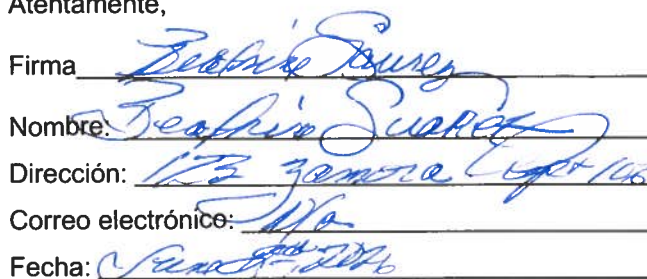 Atentamente,
Firma Beatriz Suarez
Nombre: Beatriz Suarez
Dirección: 123 Zamora Apt 106
Correo electrónico: N/a
Fecha: June